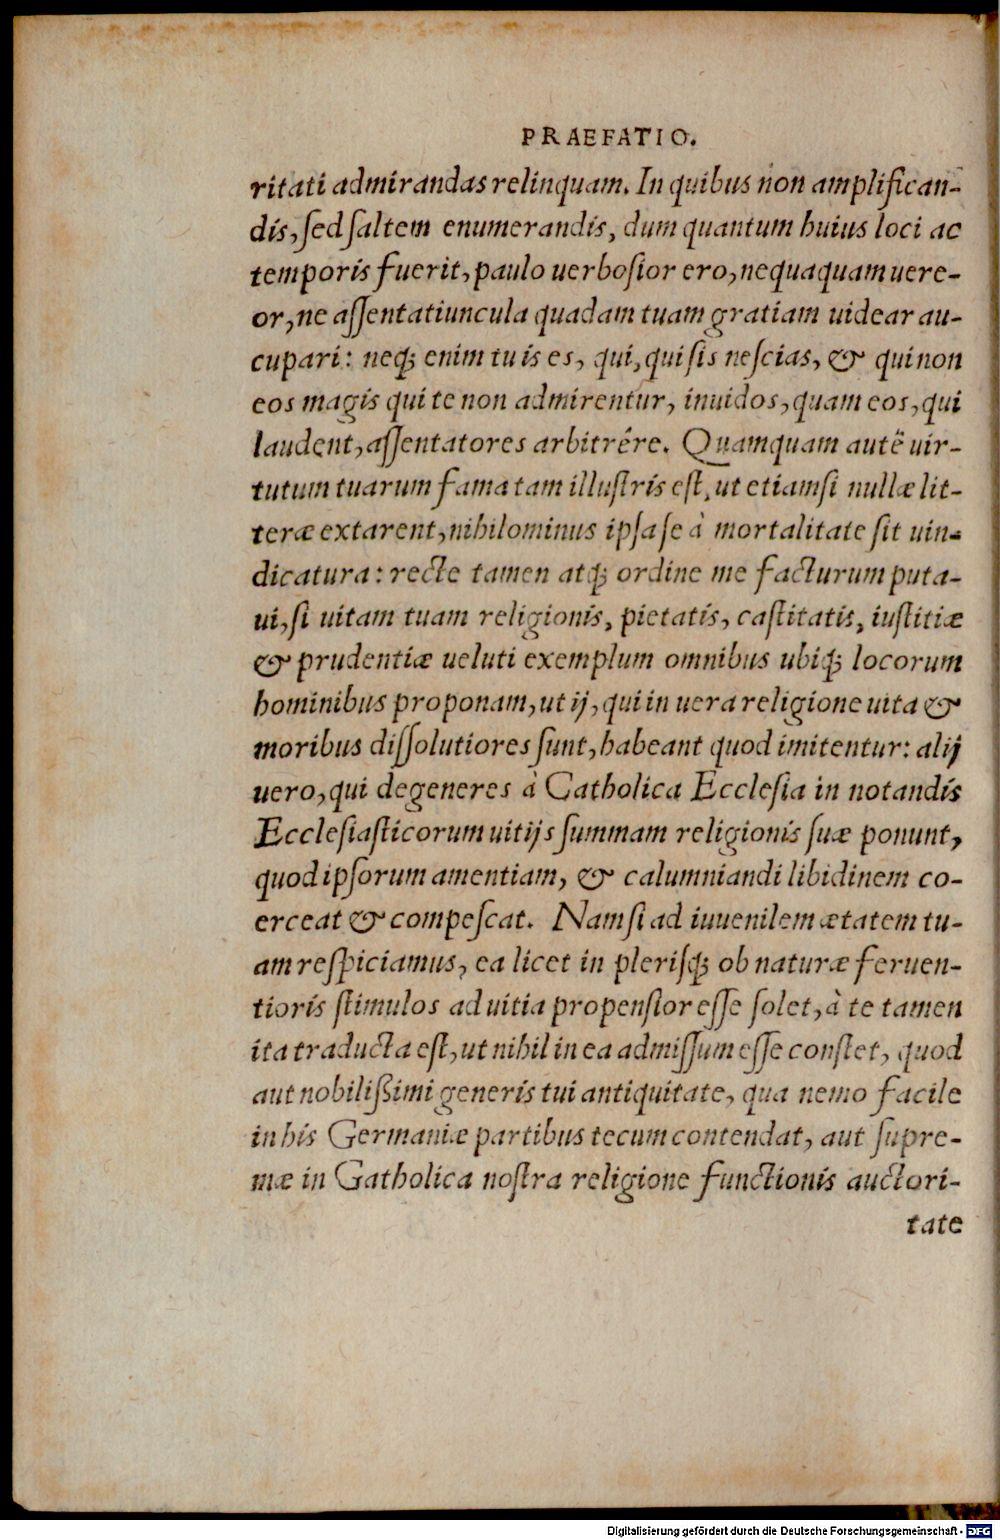 PRAEFATIO.
ritati admirandas relinquam. In quibus non amplifican-
dis, ſed ſaltem enumerandis, dum quantum huius loci ac
temporis fuerit, paulo uerboſior ero, nequaquam uere-
or, ne aſſentatiuncula quadam tuam gratiam uidear au-
cupari: neq́; enim tu is es, qui, qui ſis neſcias, & qui non
eos magis qui te non admirentur, inuidos, quam eos, qui
laudent, aſſentatores arbitrére. Quamquam autē uir-
tutum tuarum fama tam illuſtris eſt, ut etiamsi nullæ lit-
teræ extarent, nihilominus ipſa ſe à mortalitate ſit uin-
dicatura: recte tamen atq́; ordine me facturum puta-
ui, ſi uitam tuam religionis, pietatis, caſtitatis, iuſtitiæ
& prudentiæ ueluti exemplum omnibus ubiq́; locorum
hominibus proponam, ut ij, qui in uera religione uita &
moribus diſſolutiores ſunt, habeant quod imitentur: alij
uero, qui degeneres à Catholica Eccleſia in notandis
Eccleſiaſticorum uitijs ſummam religionis ſuæ ponunt,
quod ipſorum amentiam, & calumniandi libidinem co-
erceat & compeſcat. Nam ſi ad iuuenilem ætatem tu-
am reſpiciamus, ea licet in pleriſq́; ob naturæ feruen-
tioris ſtimulos ad uitia propenſior eſſe ſolet, à te tamen
ita traducta eſt, ut nihil in ea admiſſum eſſe conſtet, quod
aut nobilißimi generis tui antiquitate, qua nemo facile
in his Germaniæ partibus tecum contendat, aut ſupre-
mæ in Catholica noſtra religione functionis auctori-
tate
Digitalisierung gefördert durch die Deutsche Forschungsgemeinschaft - DFG